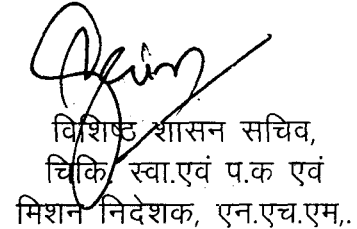 विशिष्ठ शासन सचिव,
चिकि. स्वा.एवं प.क एवं
मिशन निदेशक, एन.एच.एम,.